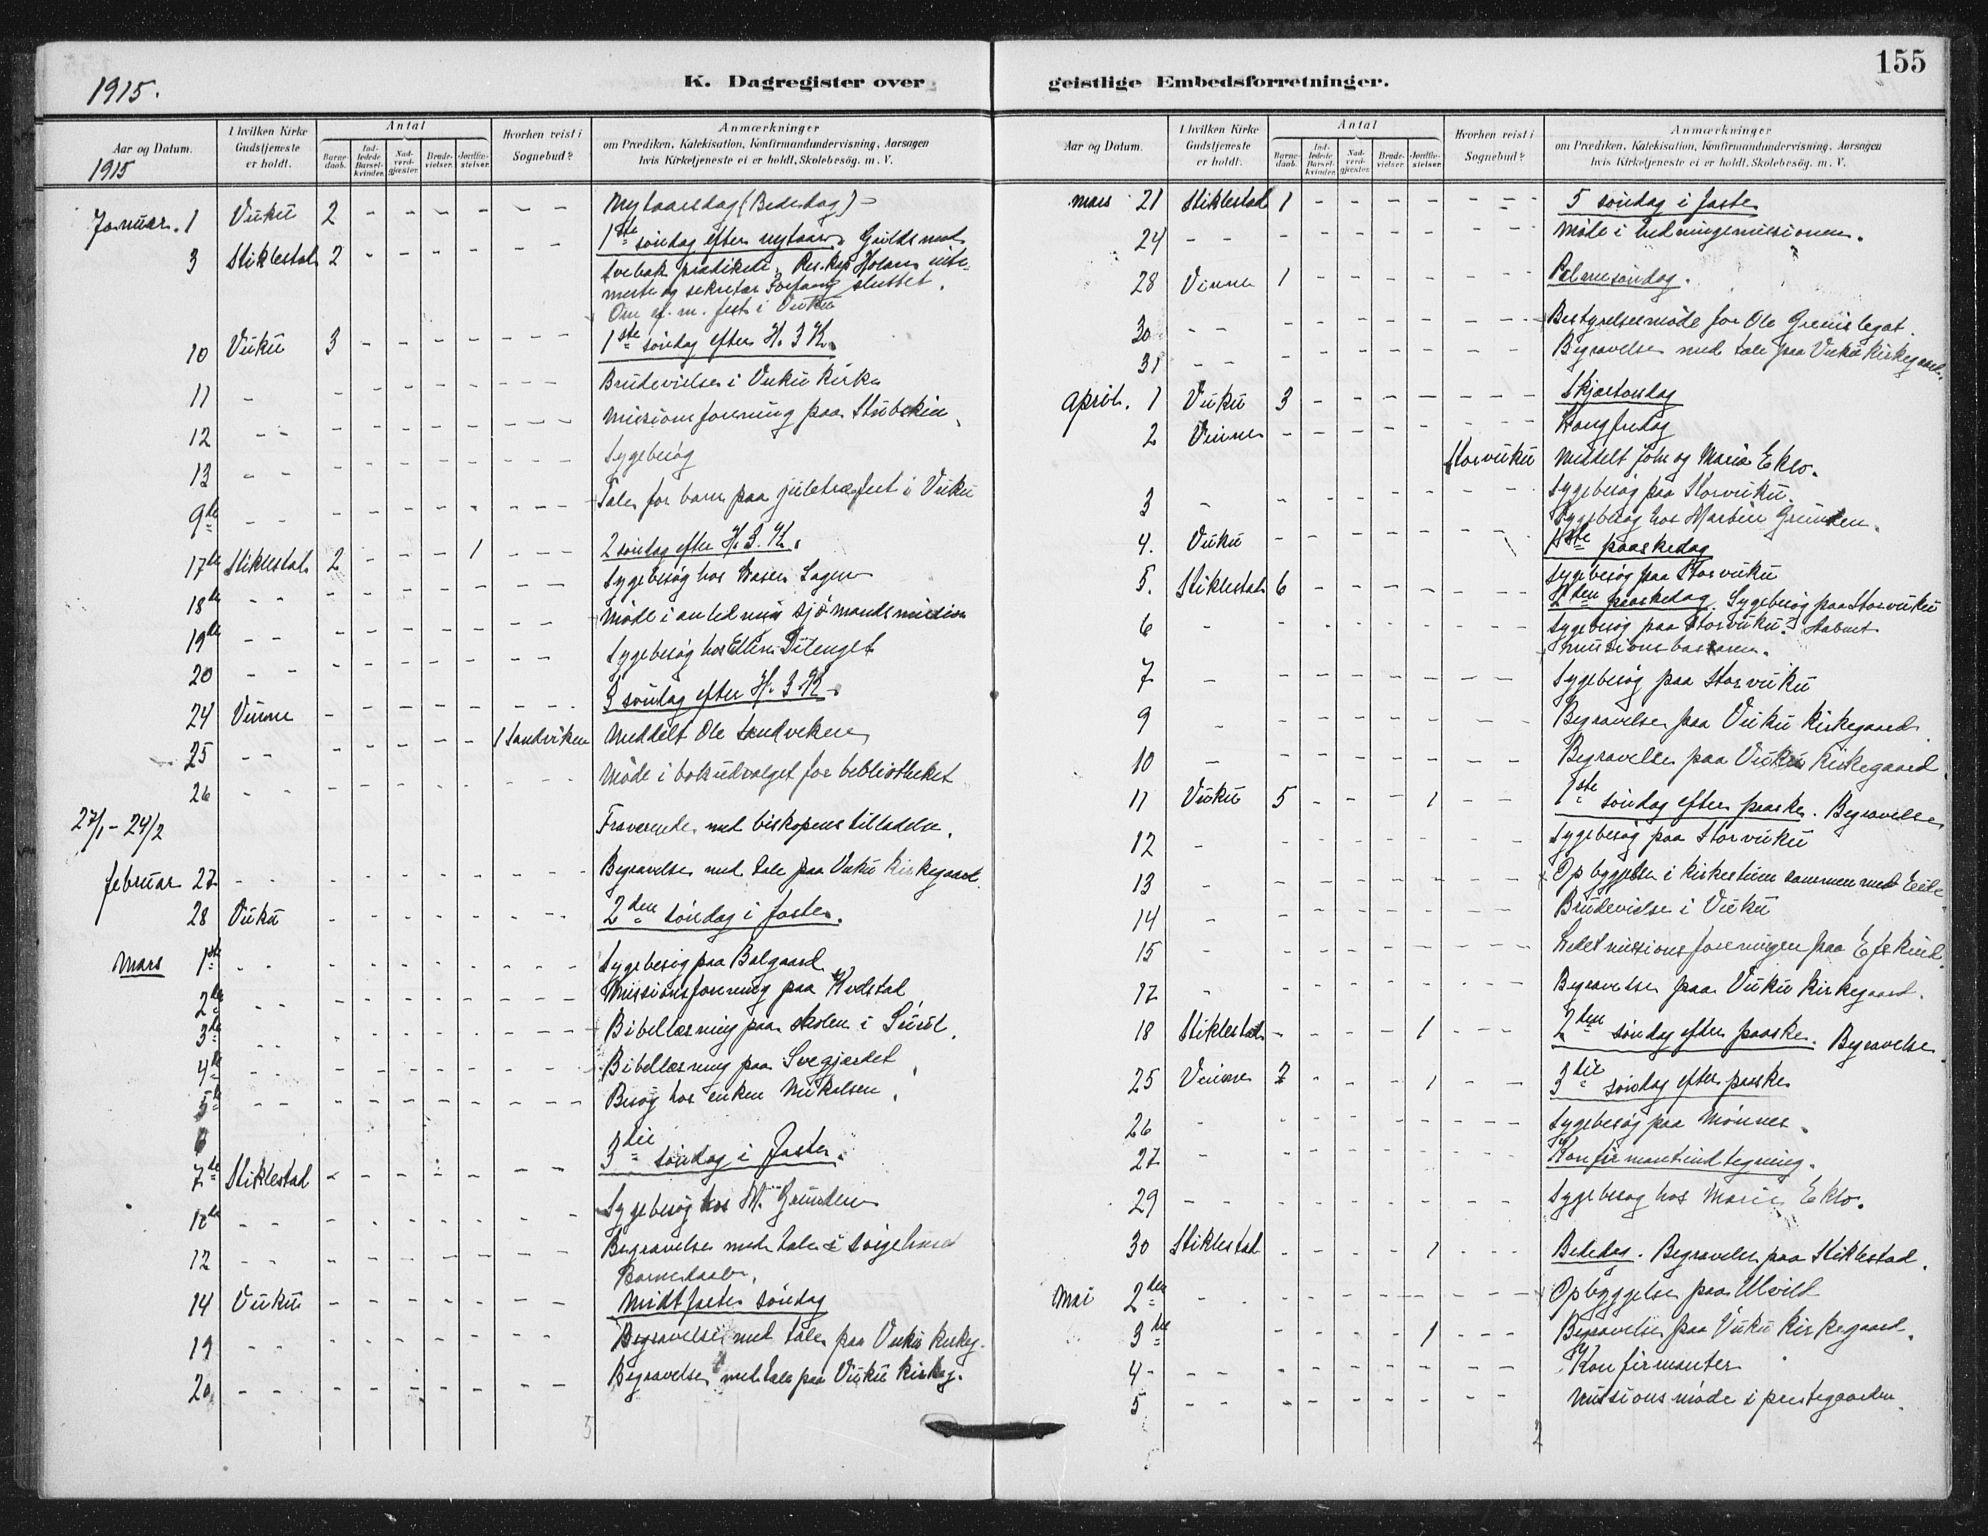 1915.
K. Dagregister over
Aar og Datum.
1915
I hvilken Kirke Gudstjeneste er holdt.
Antal
Barne-daab.
Ind-ledede Barsel-kvinder.
Nad-verd-gjæster.
Brude-vielser.
Jordfæ-stelser.
Hvorhen reist i Sognebud?
Anmærkninger
om Prædiken, Katekisation, Konfirmandundervisning, Aarsagen
hvis Kirketjeneste ei er holdt, Skolebesög, m. V.
Januar. 1 Vuku 2 - - - - - - Nytaarsdag (Bededag) -
3 Stiklestad 2 - - - - - - 1ste søndag efter nytaar.
prædikede. Res. kap
og sekretær sluttet.
m. fest i Vuku
10 Vuku 3 - - - - - - 1ste søndag efter H. 3 K.
11 - - - - - - - - Brudevielse i Vuku kirke
12 - - - - - - - - Missionsforening paa
13 - - - - - - - - Sygebesøg
9de - - - - - - - - Tale for barn paa juletræfest i Vuku
17de Stiklestad 2 - - - 1 - - - 2 søndag efter H. 3. K.
18de - - - - - - - - Sygebesøg hos
19de - - - - - - - - Møde i anledning sjømandsmission
20 - - - - - - - - Sygebesøg hos Ellen
24 Vinne - - - - - - - 3 søndag efter H. 3 K.
25 - - - - - - - 1 Sandviken Meddelt Ole Sandviken
26 - - - - - - - - Møde i bokudvalget for bibliotheket
27/1 - 24/2 Fraværende med biskopens tilladelse.
februar 27 - - - - - - - - Begravelse med tale paa Vuku kirkegaard.
28 Vuku - - - - - - - 2den søndag i faste.
Mars 1ste - - - - - - - - Sygebesøg paa Balgaard
2de - - - - - - - - Missionsforening paa
3de - - - - - - - - Bibellæsning paa skolen i
4de - - - - - - - - Bibellæsning paa Svegjærdet
5te - - - - - - - - Besøg hos enken Mikalsen.
6
7de Stiklestad - - - - - - - 3die søndag i Faste.
- - - - - - - - Sygebesøg hos M. Grunden
12 - - - - - - - - Begravelse med tale i sørgehuset
Barnedaab.
14 Vuku - - - - - - - Midtfaste søndag
19 - - - - - - - - Begravelse med tale paa Vuku kirkeg.
20 - - - - - - - - Begravelse med tale paa Vuku kirkeg.
geistlige Embedsforretninger.
155
Aar og Datum.
I hvilken Kirke Gudstjeneste er holdt.
Antal
Barne-daab.
Ind-ledede Barsel-kvinder.
Nad-verd-gjæster.
Brude-vielser.
Jordfæ-stelser.
Hvorhen reist i Sognebud?
Anmærkninger
om Prædiken, Katekisation, Konfirmandundervisning, Aarsagen
hvis Kirketjeneste ei er holdt, Skolebesög, m. V.
mars 21 Stiklestad 1 - - - - - - 5 søndag i faste
24 - - - - - - - - Møde i
28 Vinne 1 - - - - - - Palmesøndag.
30 - - - - - - - - Bestyrelsesmøde for Ole Grenis legat.
31 - - - - - - - - Begravelse med tale paa Vuku kirkegaard.
April. 1 Vuku 3 - - - - - - Skjærtorsdag
2 Vinne - - - - - - - Langfredag
Storvuku Meddelt John og Maria Eklo.
3 - - - - - - - - Sygebesøg paa Storvuku.
Sygebesøg hos Martin Grunden.
4. Vuku - - - - - - - 1ste paaskedag
Sygebesøg paa Storvuku
5. Stiklestad 6 - - - - - - 2den paaskedag. Sygebesøg paa Storvuku
6 - - - - - - - - Sygebesøg paa Storvuku.
7 - - - - - - - - Sygebesøg paa Storvuku
9 - - - - - - - - Begravelse paa Vuku kirkegaard.
10 - - - - - - - - Begravelse paa Vuku kirkegaard.
11 Vuku 5 - - - 1 - - 1ste søndag efter paaske. Begravelse
12 - - - - - - - - Sygebesøg paa Storvuku
13 - - - - - - - - Opbyggelse i kirkestuen sammen med
14 - - - - - - - - Brudevielse i Vuku
15 - - - - - - - - Ledet missionsforeningen paa
17 - - - - - - - - Begravelse paa Vuku kirkegaard.
18 Stiklestad - - - - 1 - - 2den søndag efter paaske. Begravelse.
25 Vinne 2 - - - 1 - - 3die søndag efter paaske
26 - - - - - - - - Sygebesøg paa Mønnes.
27 - - - - - - - - Konfirmantindtegning.
29 - - - - - - - - Sygebesøg hos Maria Eklo.
30 Stiklestad - - - - 1 - - Bededag. Begravelse paa Stiklestad.
Mai 2den - - - - - - - - Opbyggelse paa Ulvild
3die - - - - 1 - - Begravelse paa Vuku kirkegaard.
4 - - - - - - - - Konfirmanter
5 - - - - - - - - Missionsmøde i prestegaarden.